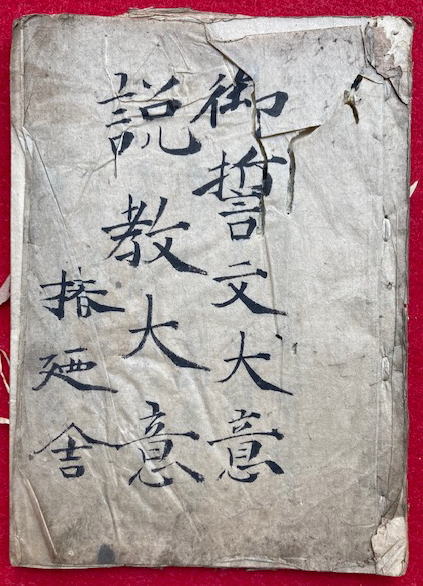 御誓文大意
説教大意
椿廼舎